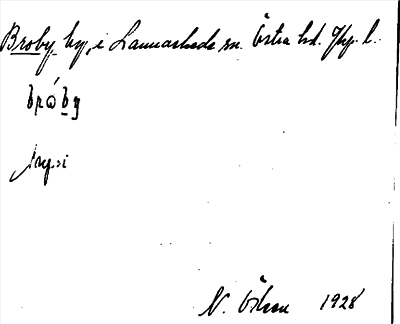 Broby by, i Lannaskede sn. Östra hd. Jkp. l.
brώby
N. Ölsen 1928